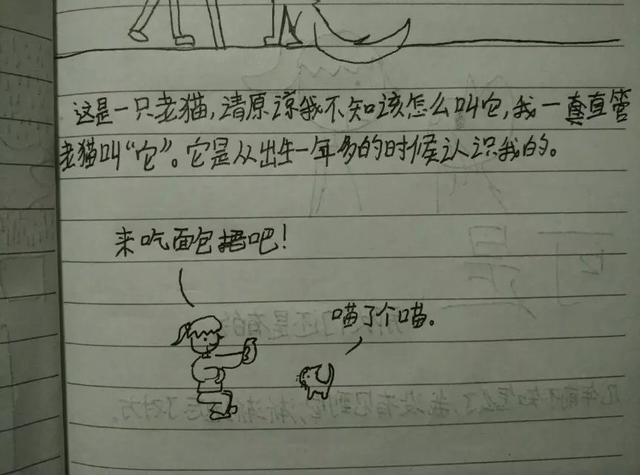 这是一只老猫，请原谅我不知该怎么叫它，我一直管
老猫叫“它”。它是从出生一年多的时候认识我的。
来吃面包吧！
喵了个喵。